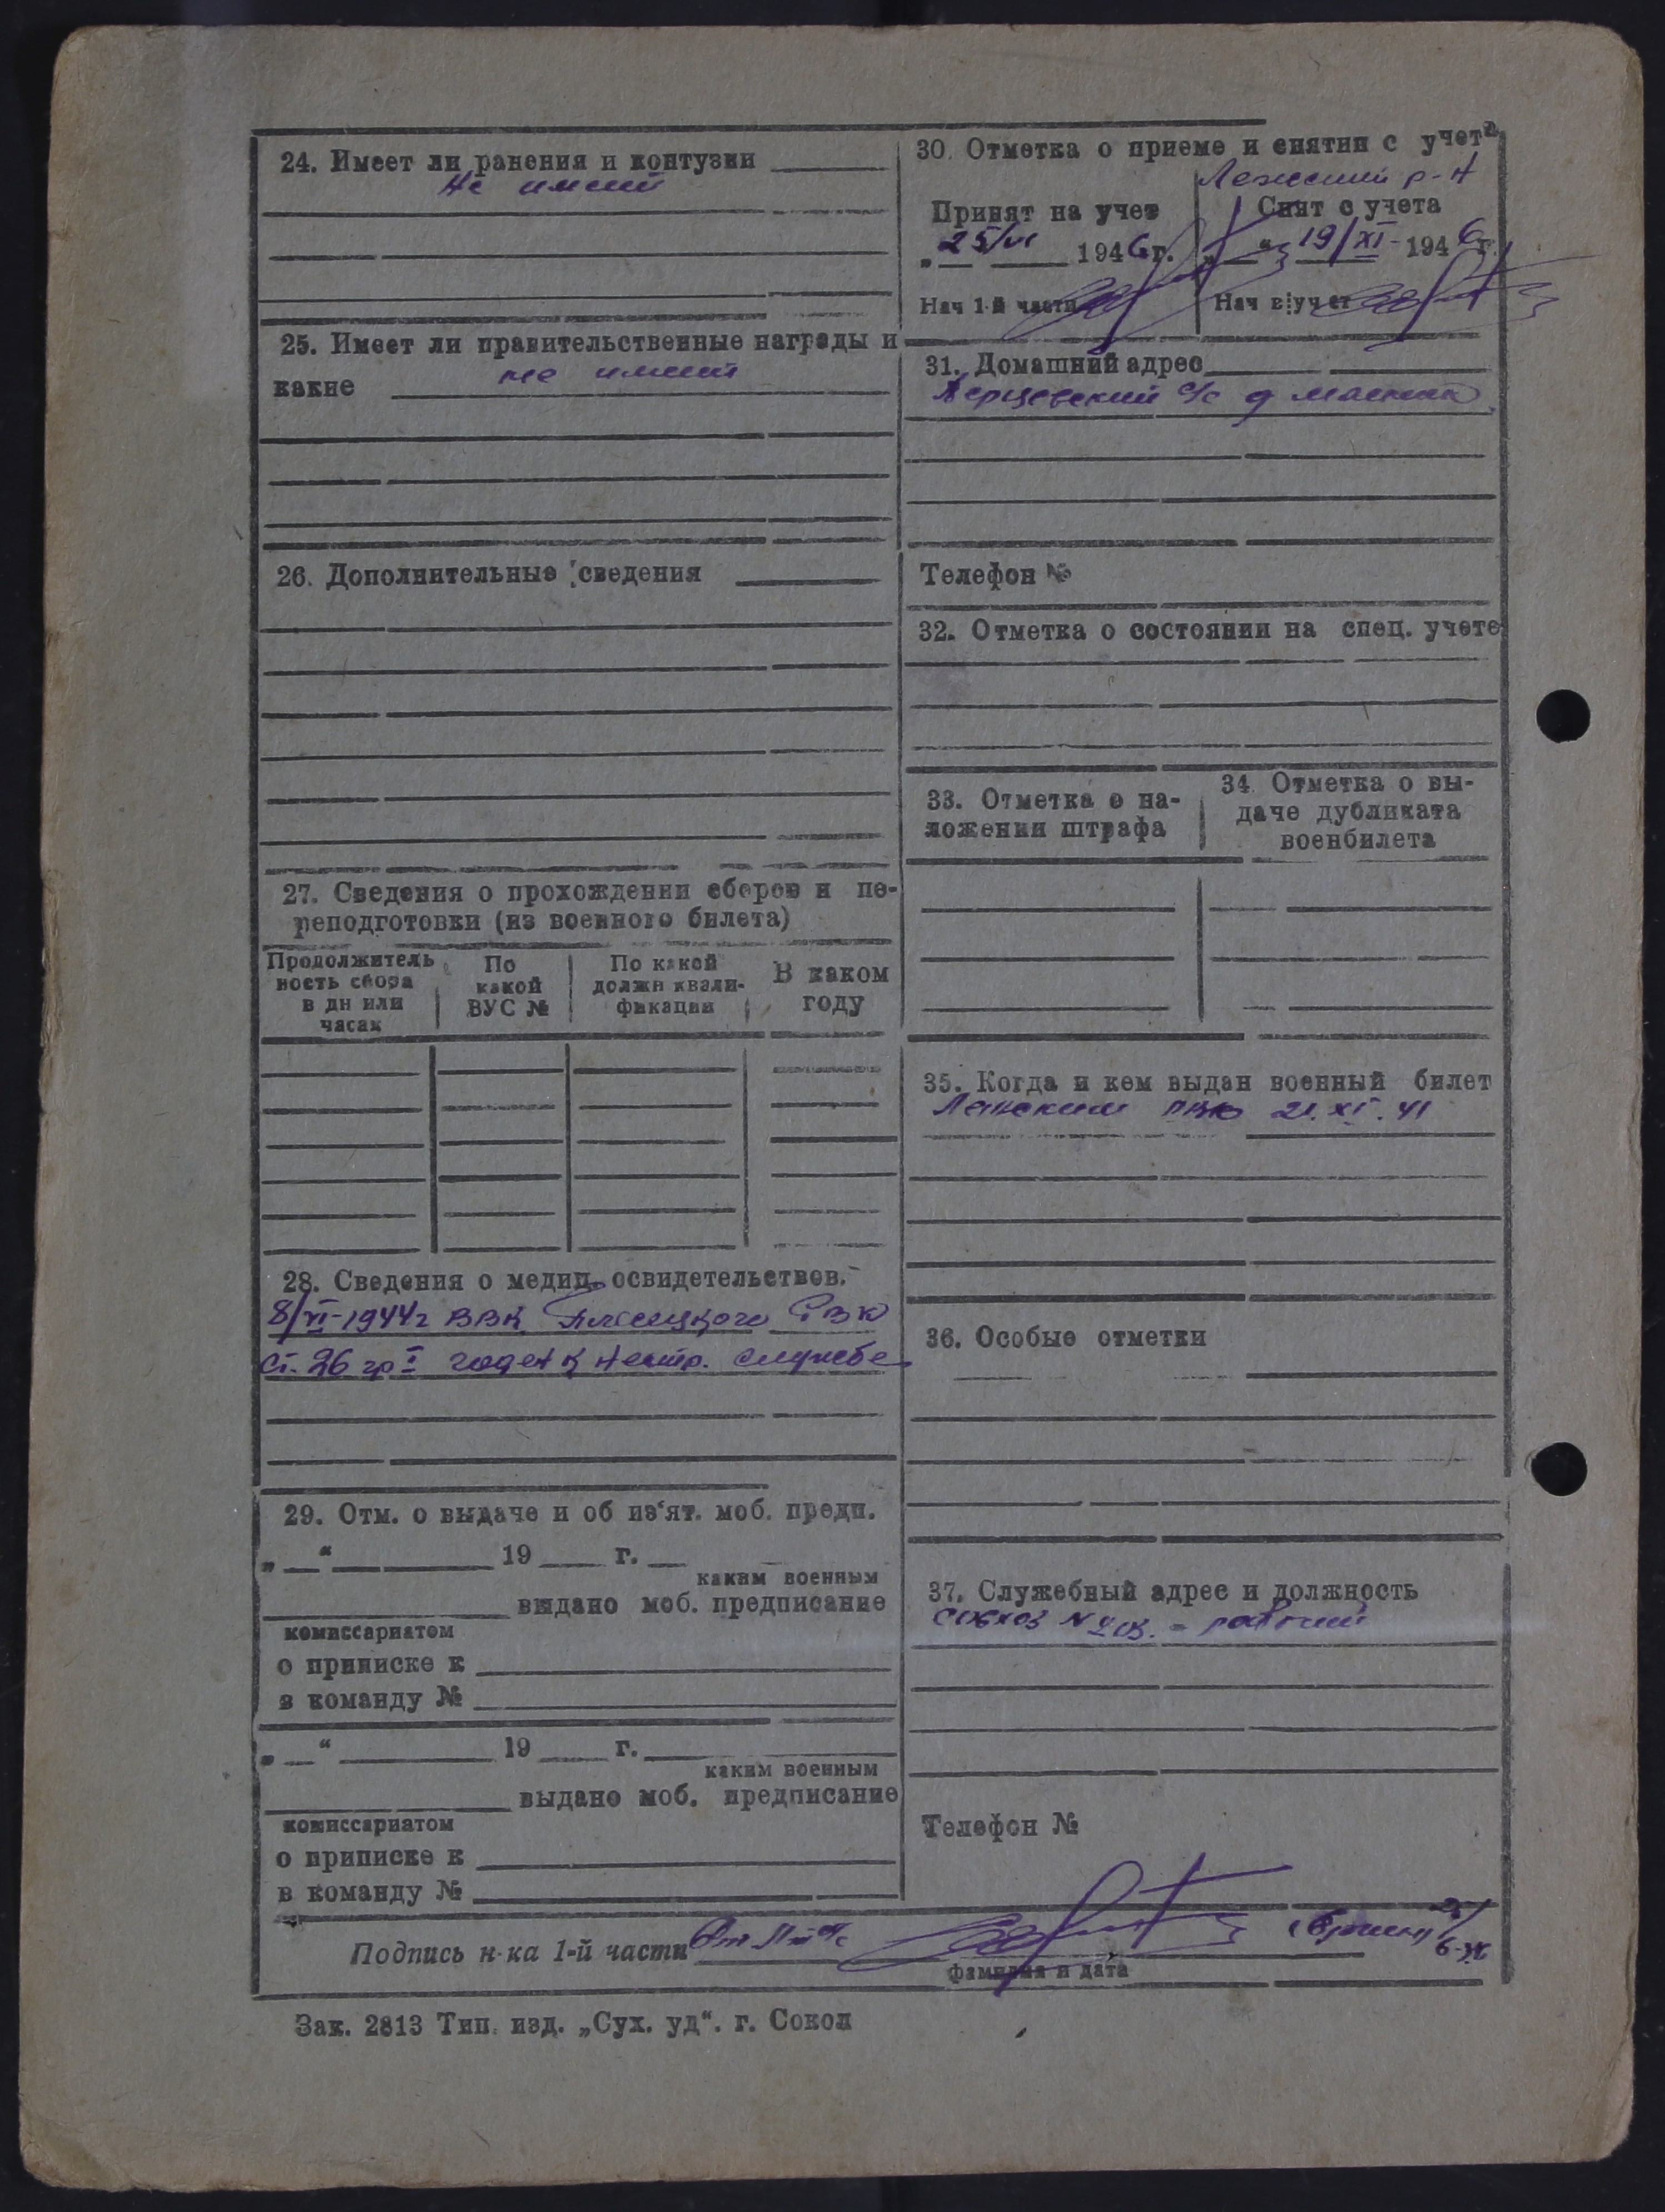 24. Имеет ли ранения и контузии
не имеет
25. Имеет ли правительственные награды и
какие не имеет
26. Дополнительные сведения
27. Сведения о прохождении сборов и пе-
реподготовки (из военного билета)
Продолжитель
ность сбора
в дн или
часах
По
какой
ВУС №
По какой
должн квали-
фикации
В каком
году
28. Сведения о медиц. освидетельствов.
8/VI-1944г ВВК Плесецкого РВК
ст. 26 гр I годен к нестр. службе
29. Отм. о выдаче и об из'ят. моб. предп.
„ “ 19 г.
каким военным
выдано моб. предписание
комиссариатом
о приписке к
в команду №
„ “ 19 г.
каким военным
выдано моб. предписание
комиссариатом
о приписке к
в команду №
30. Отметка о приеме и снятии с учета
р-н
Принят на учет
„25/VI 1946г.
Нач 1-й части
Снят с учета
„ “ 19/XI- 1946г.
Нач в/учет
31. Домашний адрес
с/с д
Телефон №
32. Отметка о состоянии на спец. учете
33. Отметка о на-
ложении штрафа
34. Отметка о вы-
даче дубликата
военбилета
35. Когда и кем выдан военный билет
РВК 21.XI.41
36. Особые отметки
37. Служебный адрес и должность
совхоз № - рабочий
Телефон №
Подпись н-ка 1-й части
фамилия и дата
Зак. 2813 Тип. изд. „Сух. уд“. г. Сокол